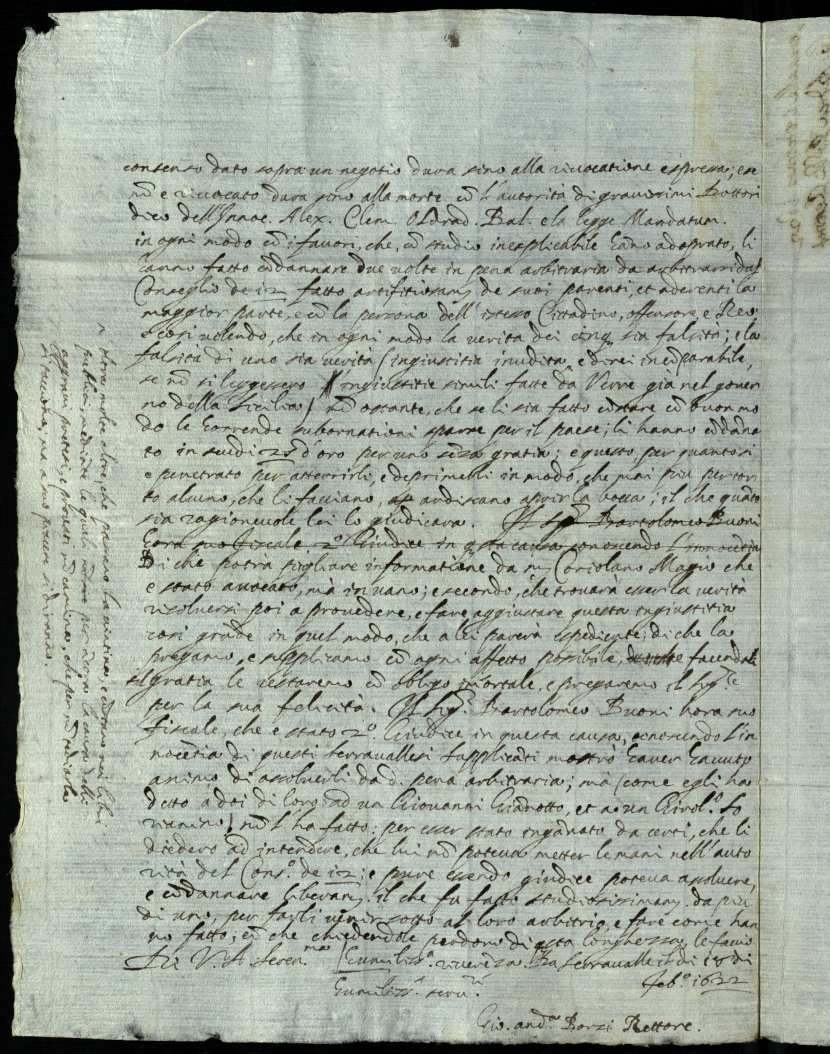 consenso dato sopra un negotio dura sino alla rivocatione espressa; e se
nō e rivocato dura sino alla morte cō l'autorità di gravissimi Dottori
dico dell'Innoc. Alex. Clem. Oldrad. Bal. e la legge Mandatum.
in ogni modo cō i favori, che, cō studio inesplicabile hāno adoprato, li
hanno fatto cōdannare due volte in pena arbitraria da arbitrarsi dal
Conseglio de 12 fatto artifitiosamᵗᵉ de suoi parenti, et aderenti la
maggior parte, e cō la persona dell'istesso Cittadino, offensore, e Reo:
e così volendo, che in ogni modo la verità dei cinq. sia falsità; e la
falsità di uno sia verità (ingiustitia inudita, e direi incōparabile,
se nō si leggessero l'ingiustitie simili fatte da Verre già nel gover
no della Sicilia) nō ostante, che se li sia fatto cōstare cō buon mo
do le horrende subornationi sparse per il paese; li hanno cōdāna
to in scudi 25 d'oro per uno senza gratia; e questo per quanto si
e penetrato per atterrirli, e deprimerli in modo, che mai più per tor
to alcuno, che li facciano, ardiscano aprir la bocca; il che quāto
sia ragionevole lei lo giudicarà. Il Sigʳ Bartolomeo Buoni
hora suo fiscale 2º Giudice in qsta causa conoscendo l'innocētia
Di che potrà pigliare informatione da mʳ Coriolano Magio che
e stato avocato, mà in vano; e secondo, che trovarà esser la verità
risolversi poi a provedere, e fare aggiustare questa ingiustitia
così grāde in quel modo, che a lei parerà espediente; di che la
pregamo, e supplicamo cō ogni affetto possibile, facendoli
gratia le restaremo cō obligo imortale, e pregaremo il Sigʳᵉ
per la sua felicità. Il Sigʳ Bartolomeo Buoni hora suo
fiscale, che e stato 2º Giudice in questa causa, conoscendo l'in
nocētia di questi serravallesi supplicati mostrò haver havuto
animo di assolverli da d. pena arbitraria; mà (come egli ha
detto a doi di loro; ad un Giovanni Grandotto, et a un Girolº
) nō l'ha fatto: per esser stato ingānato da certi, che li
diedero ad intendere, che lui nō poteva metter le mani nell'auto
rità del Consº de 12; e pure essendo giudice poteva assolvere,
e cōdannare liberamᵗᵉ. il che fu fatto studiosissimamᵗᵉ da più
di uno, per farli venir sotto al loro arbitrio, e fare come han
no fatto; cō che chiedendole perdono di qsta longhezza, le faccio
Di V. A. Serenᵐᵃ humilissᵃ riverēza. Da Serravalle il dì 18 di
Febº 1622
humilissº servʳᵉ
Gio. andª Borzi Rettore.
altre, che passano la ventina, e cōstano nei libri
publici, mediante le quali la cura delli
, che per nō tediarla
si tacciono, ma a suo potere si diranno.